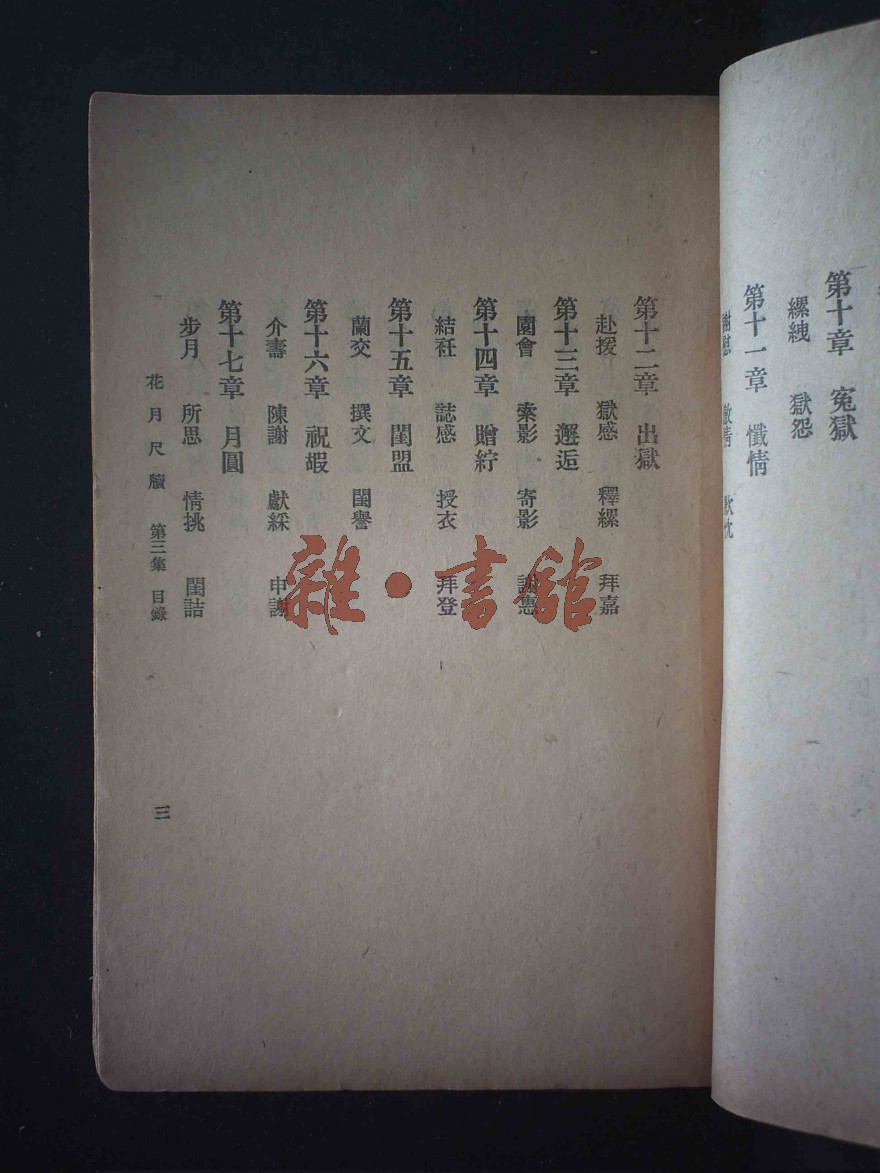 第十章　冤獄
縲絏　獄怨
第十一章　懺情
第十二章　出獄
赴援　獄感　釋縲　拜嘉
第十三章　邂逅
園會　索影　寄影　謝惠
第十四章　贈紵
結衽　誌感　授衣　拜登
第十五章　閨盟
蘭交　撰文　閨譽
第十六章　祝嘏
介壽　陳謝　獻綵　申謝
第十七章　月圓
步月　所思　情挑　閨詰
花月尺牘　第三集　目錄
三
雜·書館